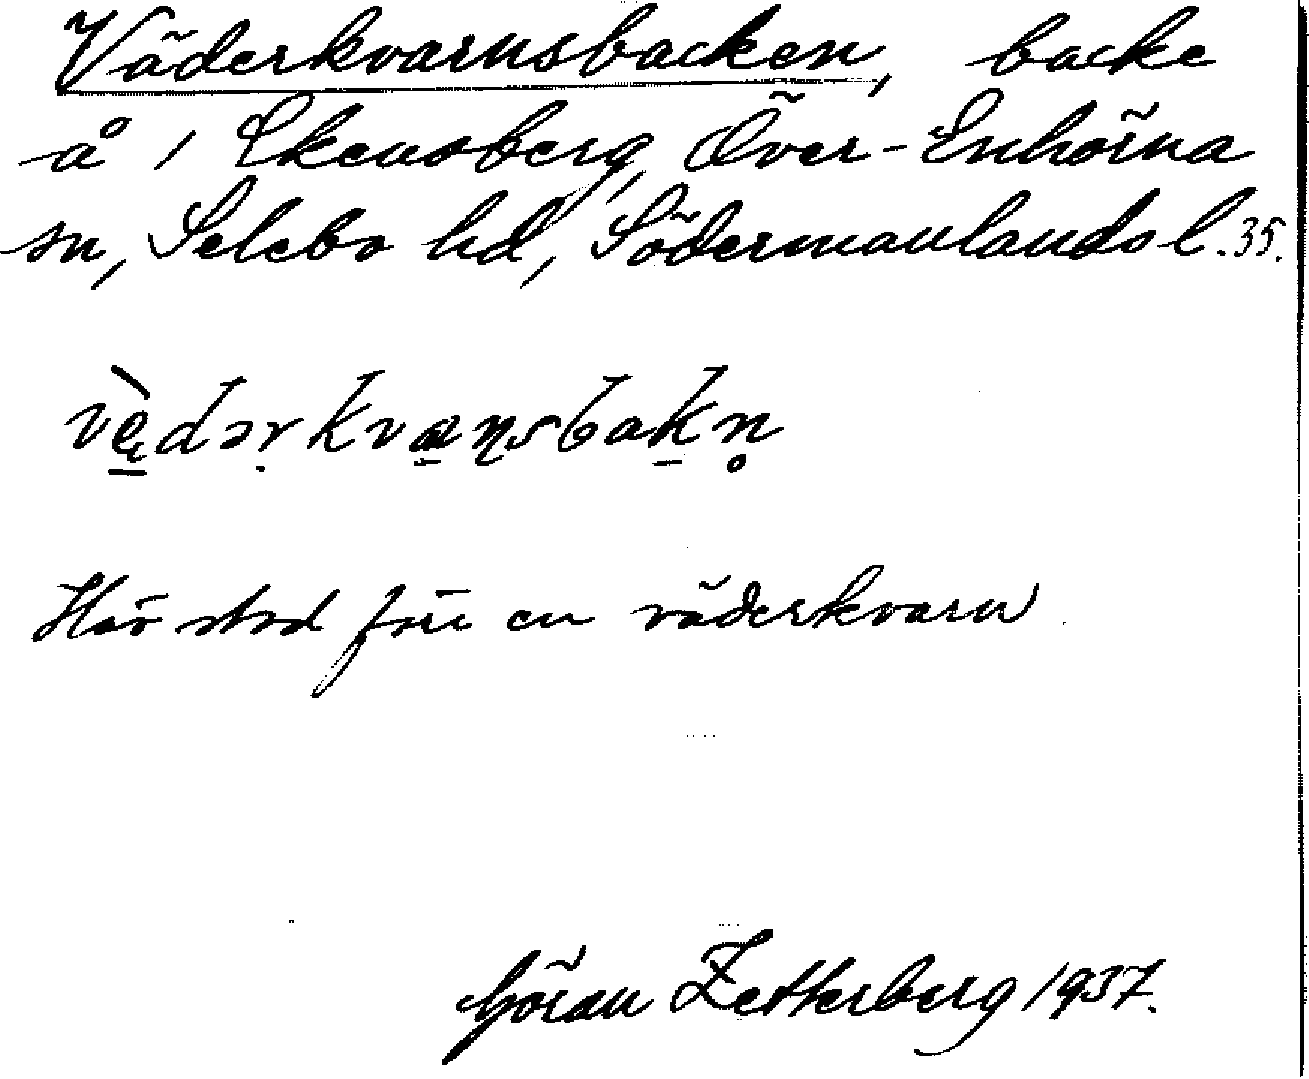 Väderkvarnsbacken, backe
å 1 Ekensberg, Över-Enhörna
sn, Selebo hd, Södermanlands l. 35.
vèdərkvaɳsbakn̥
Här stod förr en väderkvarn
Göran Zetterberg 1937.